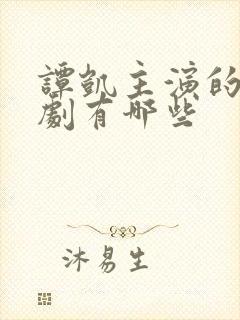 譚凱主演的
劇有哪些
沐易生